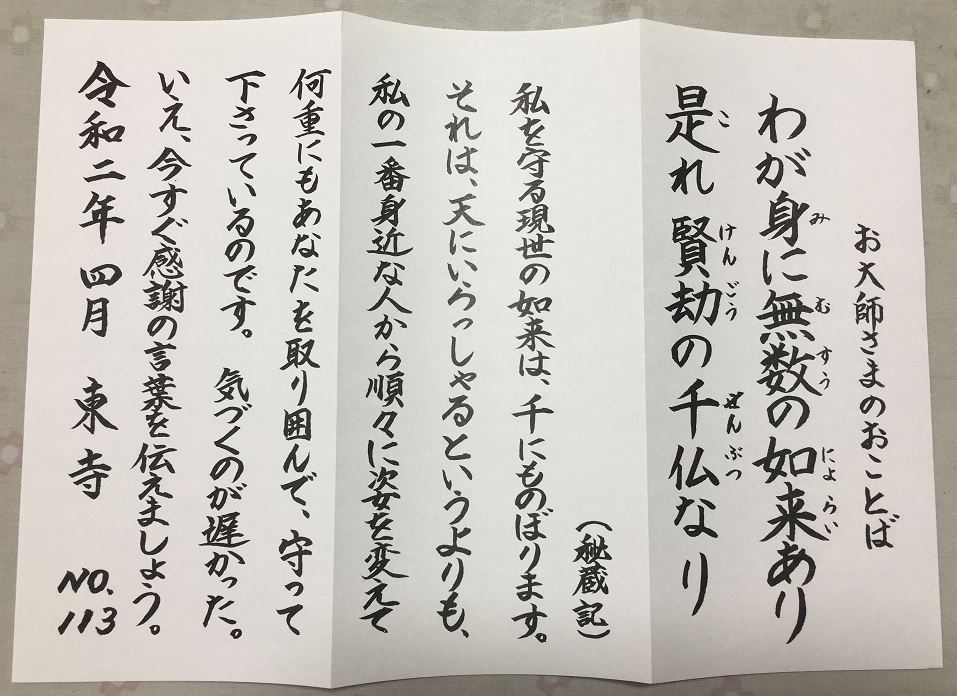 お大師さまのおことば
わが身に無数の如来あり
み む すう にょ らい
是れ 賢劫の千仏なり
こ けん ごう せん ぶつ
(秘蔵記)
私を守る現世の如来は、千にものぼります。
それは、天にいらっしゃるというよりも、
私の一番身近な人から順々に姿を変えて
何重にもあなたを取り囲んで、守って
下さっているのです。 気づくのが遅かった。
いえ、今すぐ感謝の言葉を伝えましょう。
令和二年 四月 東寺
NO.
113